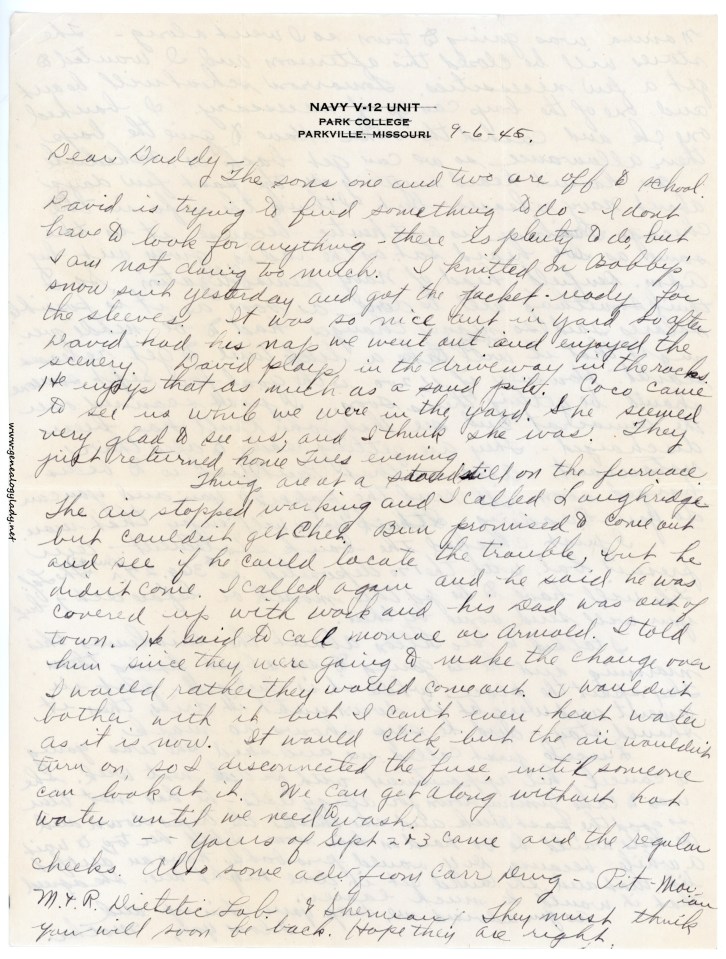 NAVY V-12 UNIT
PARK COLLEGE
PARKVILLE, MISSOURI
9-6-45.
Dear Daddy -
The sons one and two are off to school.
David is trying to find something to do - I dont
have to look for anything - there is plenty to do, but
I am not doing too much. I knitted on Bobby's
snow suit yesterday and got the jacket ready for
the sleeves. It was so nice out in yard so after
David had his nap we went out and enjoyed the
scenery. David plays in the driveway in the rocks.
He enjoys that as much as a sand pile. Coco came
to see us while we were in the yard. She seemed
very glad to see us, and I think she was. They
just returned home Tues evening.
Thing are at a standstill on the furnace
The air stopped working and I called Loughridge
but couldn't get Chet. Bun promised to come out
and see if he could locate the trouble, but he
didn't come. I called again and he said he was
covered up with work and his Dad was out of
town. He said to call Monroe or Arnold. I told
him since they were going to make the change over
I would rather they would come out. I wouldn't
bother with it but I can't even heat water
as it is now. It would click, but the air wouldn't
turn on, so I disconnected the fuse, until someone
can look at it. We can get along without hot
water until we need to wash.
- - Yours of Sept 2 & 3 came and the regular
checks. Also some adv from Carr Drug - Pit-Morian
M. & R. Dietetic Lab. & Sherman. They must think
you will soon be back. Hope they are right.
www.genealogylady.net